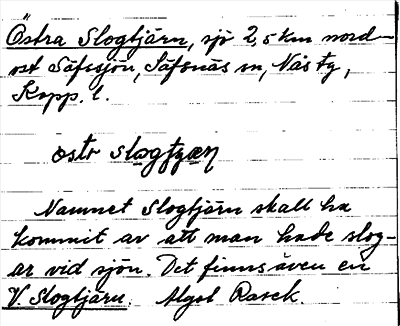 Östra Slogtjärn, sjö 2,5 km nord-
ost Säfssjön, Säfsnäs sn, Nås tg,
Kopp. l.
östr slogtjæn
Namnet Slogtjärn skall ha
kommit av att man hade slog-
ar vid sjön. Det finns även en
V. Slogtjärn. Algot Rasck